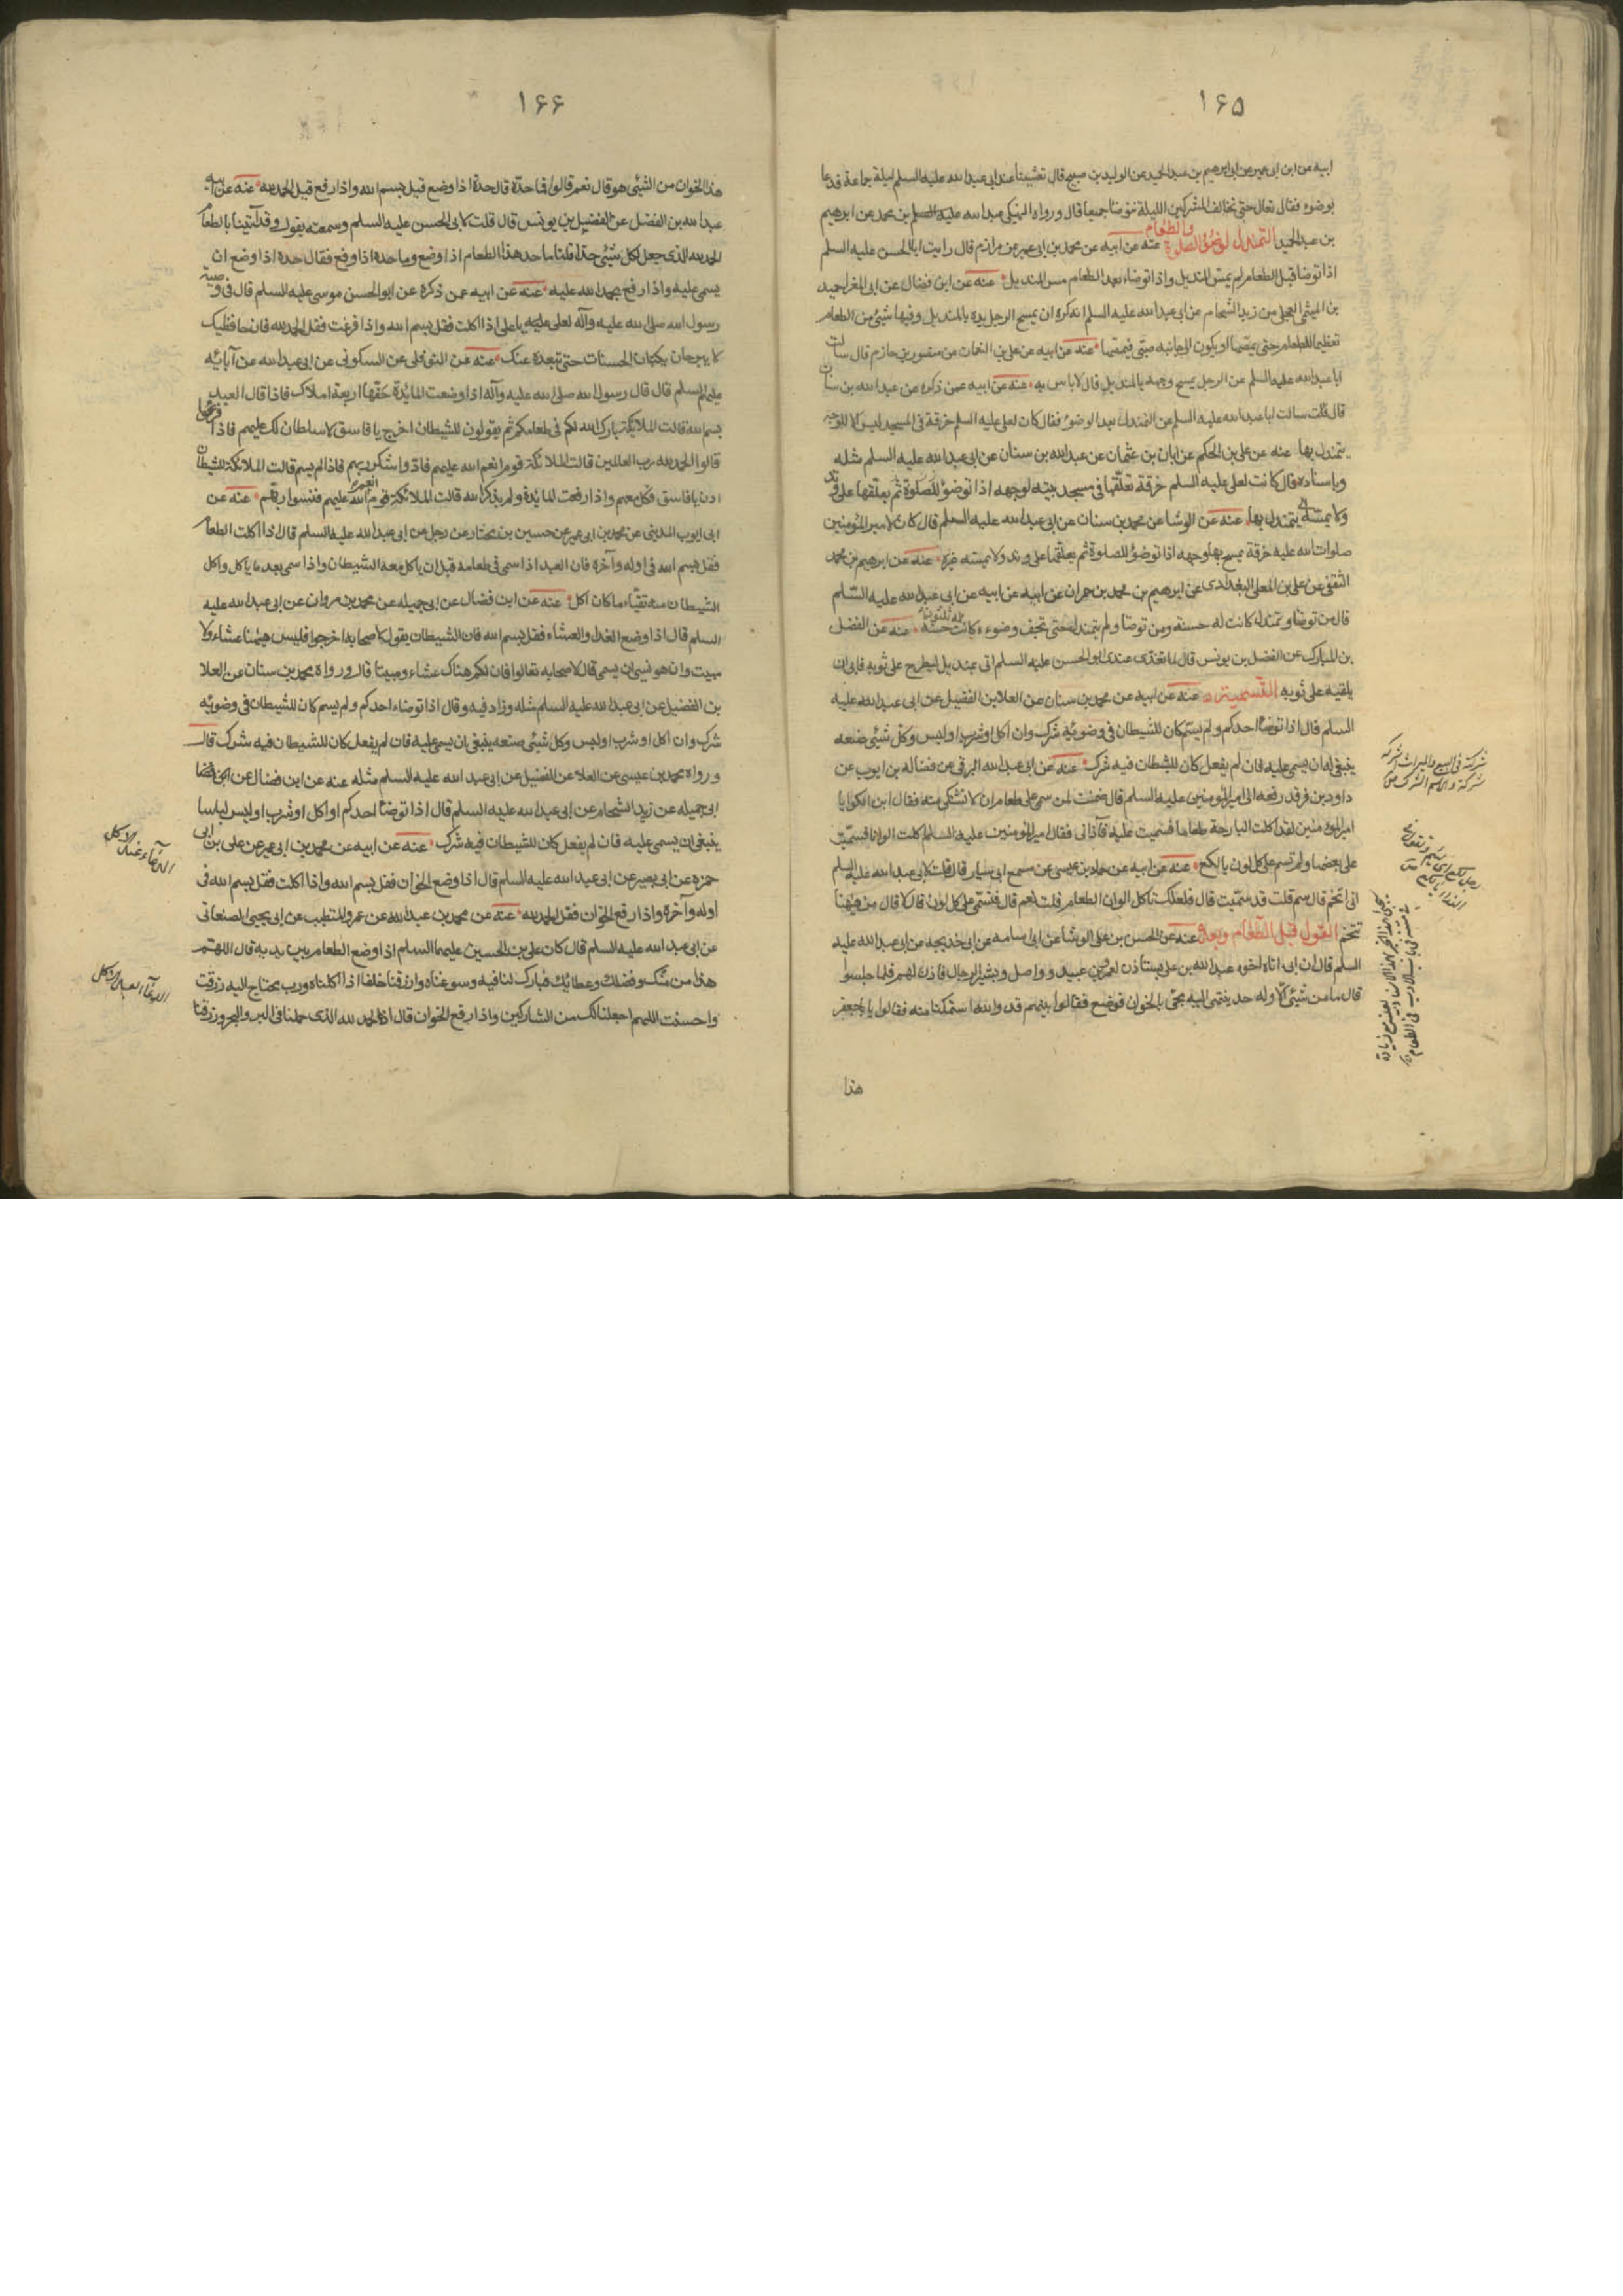 ۱۶۵
ابيه عن ابن ابى عمير عن ابراهيم بن عبد الحميد عن الوليد بن صبيح قال تعشينا عند ابى عبد الله عليه السلم ليلة جماعة فدعا
بوضوء فقال تعال حتى نخالف المشركين الليلة نتوضأ جميعا قال ورواه النهيكى عبد الله عليه السلم بن محمد عن ابرهيم
بن عبد الحميد التمندل لوضوء الصلوة والطعام عنه عن ابيه عن محمد بن ابى عمير عن مرازم قال رايت ابا الحسن عليه السلم
اذا توضا قبل الطعام لم يمس المنديل واذا توضاء بعد الطعام مس المنديل عنه عن ابن فضال عن ابى المغرا حميد
بن المثنى العجلى عن زيد الشحام عن ابى عبد الله عليه السلم انه كره ان يمسح الرجل يده بالمنديل وفيها شيئ من الطعام
تعظيما للطعام حتى يمصها او يكون الى جانبه صبى فيمصها عنه عن ابيه عن على بن النعمان عن منصور بن حازم قال سالت
ابا عبد الله عليه السلم عن الرجل يمسح وجهه بالمنديل قال لا باس به عنه عن ابيه عمن ذكره عن عبد الله بن سنان
قال قلت سالت ابا عبد الله عليه السلم عن التمندل بعد الوضوء فقال كان لعلى عليه السلم خرقة فى المسجد ليس الا للوجه
يتمندل بها عنه عن على بن الحكم عن ابان بن عثمان عن عبد الله بن سنان عن ابى عبد الله عليه السلم مثله
وباسناده قال كانت لعلى عليه السلم خرقة تعلقها فى مسجد بيته لوجهه اذا توضؤ للصلوة ثم يعلقها على وتد
ولا يمسه يتمندل بها عنه عن الوشا عن محمد بن سنان عن ابى عبد الله عليه السلم قال كان لامير المؤمنين
صلوات الله عليه خرقة يمسح بها وجهه اذا توضؤ للصلوة ثم يعلقها على وتد ولا يمسه غيره عنه عن ابرهيم بن محمد
الثقفى عن على بن المعلى البغدادى عن ابرهيم بن محمد بن حمران عن ابيه عن ابيه عن ابى عبد الله عليه السّلم
قال من توضا وتمندل كانت له حسنة ومن توضا ولم يتمندل حتى تجف وضوءه كانت له ثلثون حسنة عنه عن الفضل
بن المبارك عن الفضل بن يونس قال لما تغدى عندى ابو الحسن عليه السلم اتى بمنديل ليطرح على ثوبه فابى ان
يلقيه على ثوبه التسمية عنه عن ابيه عن محمد بن سنان عن العلا بن الفضيل عن ابى عبد الله عليه
السلم قال اذا توضأ احدكم ولم يسم كان للشيطان فى وضوئه شرك وان اكل او شرب او لبس وكل شيئ صنعه
ينبغى له ان يسمى عليه فان لم يفعل كان للشيطان فيه شرك عنه عن ابى عبد الله البرقى عن فضاله بن ايوب عن
داود بن فرقد رفعه الى امير المؤمنين عليه السلم قال ضمنت لمن سمى على طعام ان لا تشتكى منه فقال ابن الكوا يا
امير المؤمنين لقد اكلت البارحة طعاما فسميت عليه فآذانى فقال امير المؤمنين عليه السلم اكلت الوانا فسمّيت
على بعضها ولم تسم على كل لون يا لكع عنه عن ابيه عن حماد بن عيسى عن مسمع ابى سيار قال قلت لابى عبد الله عليه السلم
انى اتخم قال سم قلت قد سمّيت قال فلعلك تاكل الوان الطعام قلت نعم قال فتسمى على كل لون قال لا قال من هيهنا
تتخم القول قبل الطعام وبعده عنه عن الحسن بن على الوشا عن ابى اسامه عن ابى خديجه عن ابى عبد الله عليه
السلم قال ان ابى اتاه اخوه عبد الله بن على يستاذن لعمرو بن عبيد وواصل وبشير الرحال فاذن لهم فلما جلسوا
قال ما من شيئ الا وله حد ينتهى اليه فجئ بالخوان فوضع فقالوا بينهم قد والله استمكنا منه فقالوا يا با جعفر
هذا
۱۶۶
هذا الخوان من الشيئ هو قال نعم قالوا فما حدّه قال حدّه اذا وضع قيل بسم الله واذا رفع قيل الحمد لله عنه عن ابيه
عبد الله بن الفضل عن الفضيل بن يونس قال قلت لابى الحسن عليه السلم وسمعته يقول وقد آتينا بالطعام
الحمد لله الذى جعل لكل شيئ حدّا قلنا ما حد هذا الطعام اذا وضع وما حده اذا رفع فقال حده اذا وضع ان
يسمى عليه واذا رفع يحمد الله عليه عنه عن ابيه عمن ذكره عن ابو الحسن موسى عليه السلم قال فى وصية
رسول الله صلى الله عليه وآله لعلى عليه يا على اذا اكلت فقل بسم الله واذا فرغت فقل الحمد لله فان حافظيك
لا يبرحان يكتبان الحسنات حتى تبعده عنك عنه عن النوفلى عن السكونى عن ابى عبد الله عن آبائه
عليهم السلم قال قال رسول الله صلى الله عليه وآله اذا وضعت المائدة حفّها اربعة املاك فاذا قال العبد
بسم الله قالت الملائكة بارك الله لكم فى طعامكم ثم يقولون للشيطان اخرج يا فاسق لا سلطان لك عليهم فاذا فرغوا
قالوا الحمد لله رب العالمين قالت الملائكة قوم انعم الله عليهم فادّوا شكر ربهم فاذا لم يسم قالت الملائكة للشيطان
ادن يا فاسق فكل معهم واذا رفعت المائدة ولم يذكر الله قالت الملائكة قوم انعم الله عليهم فنسوا ربهم عنه عن
ابى ايوب المدينى عن محمد بن ابى عمير عن حسين بن مختار عن رجل عن ابى عبد الله عليه السلم قال اذا اكلت الطعام
فقل بسم الله فى اوله وآخره فان العبد اذا سمى فى طعامه قبل ان ياكل لم ياكل معه الشيطان واذا سمى بعد ما ياكل واكل
الشيطان منه تقيّاء ما كان اكل عنه عن ابن فضال عن ابى جميله عن محمد بن مروان عن ابى عبد الله عليه
السلم قال اذا وضع الغداء والعشاء فقل بسم الله فان الشيطان يقول لاصحابه اخرجوا فليس هيهنا عشاء ولا
مبيت وان هو نسى ان يسمى قال لاصحابه تعالوا فان لكم هناك عشاء ومبيتا قال ورواه محمد بن سنان عن العلا
بن الفضيل عن ابى عبد الله عليه السلم مثله وزاد فيه وقال اذا توضاء احدكم ولم يسم كان للشيطان فى وضوئه
شرك وان اكل او شرب او لبس وكل شيئ صنعه ينبغى ان يسمى عليه فان لم يفعل كان للشيطان فيه شرك قال
ورواه محمد بن عيسى عن العلا عن الفضيل عن ابى عبد الله عليه السلم مثله عنه عن ابن فضال عن
ابى جميله عن زيد الشحام عن ابى عبد الله عليه السلم قال اذا توضأ احدكم او اكل او شرب او لبس لباسا
ينبغى ان يسمى عليه فان لم يفعل كان للشيطان فيه شرك عنه عن ابيه عن محمد بن ابى عمير عن على بن ابى
حمزه عن ابى بصير عن ابى عبد الله عليه السلم قال اذا وضع الخوان فقل بسم الله واذا اكلت فقل بسم الله فى
اوله وآخره واذا رفع الخوان فقل الحمد لله عنه عن محمد بن عبد الله عن عمرو المتطبب عن ابى يحيى الصنعانى
عن ابى عبد الله عليه السلم قال كان على بن الحسين عليهما السلم اذا وضع الطعام بين يديه قال اللهم
هذا من منّك وفضلك وعطائك فبارك لنا فيه وسوغناه وارزقنا خلفا اذا اكلناه ورب محتاج اليه رزقت
واحسنت اللهم اجعلنا لك من الشاكرين واذا رفع الخوان قال الحمد لله الذى حملنا فى البر والبحر ورزقنا
الدعاء عند الاكل
الدعا بعد الاكل